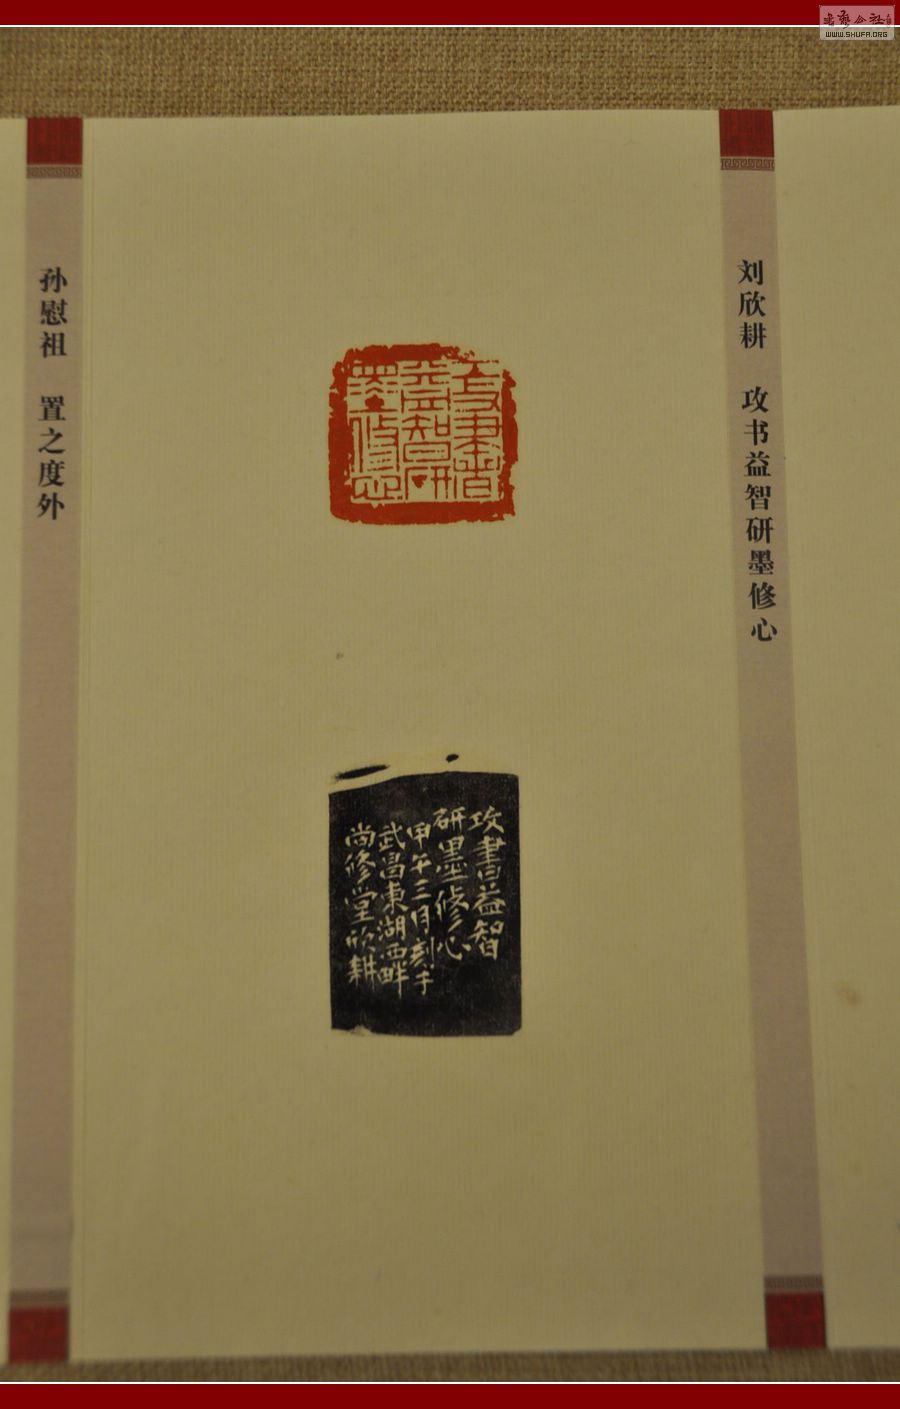 刘欣耕 攻书益智研墨修心
攻書益智研墨修心
攻書益智
研墨修心
甲午三月刻于
武昌東湖西畔
尚修堂欣耕
孙慰祖 置之度外
WWW.SHUFA.ORG